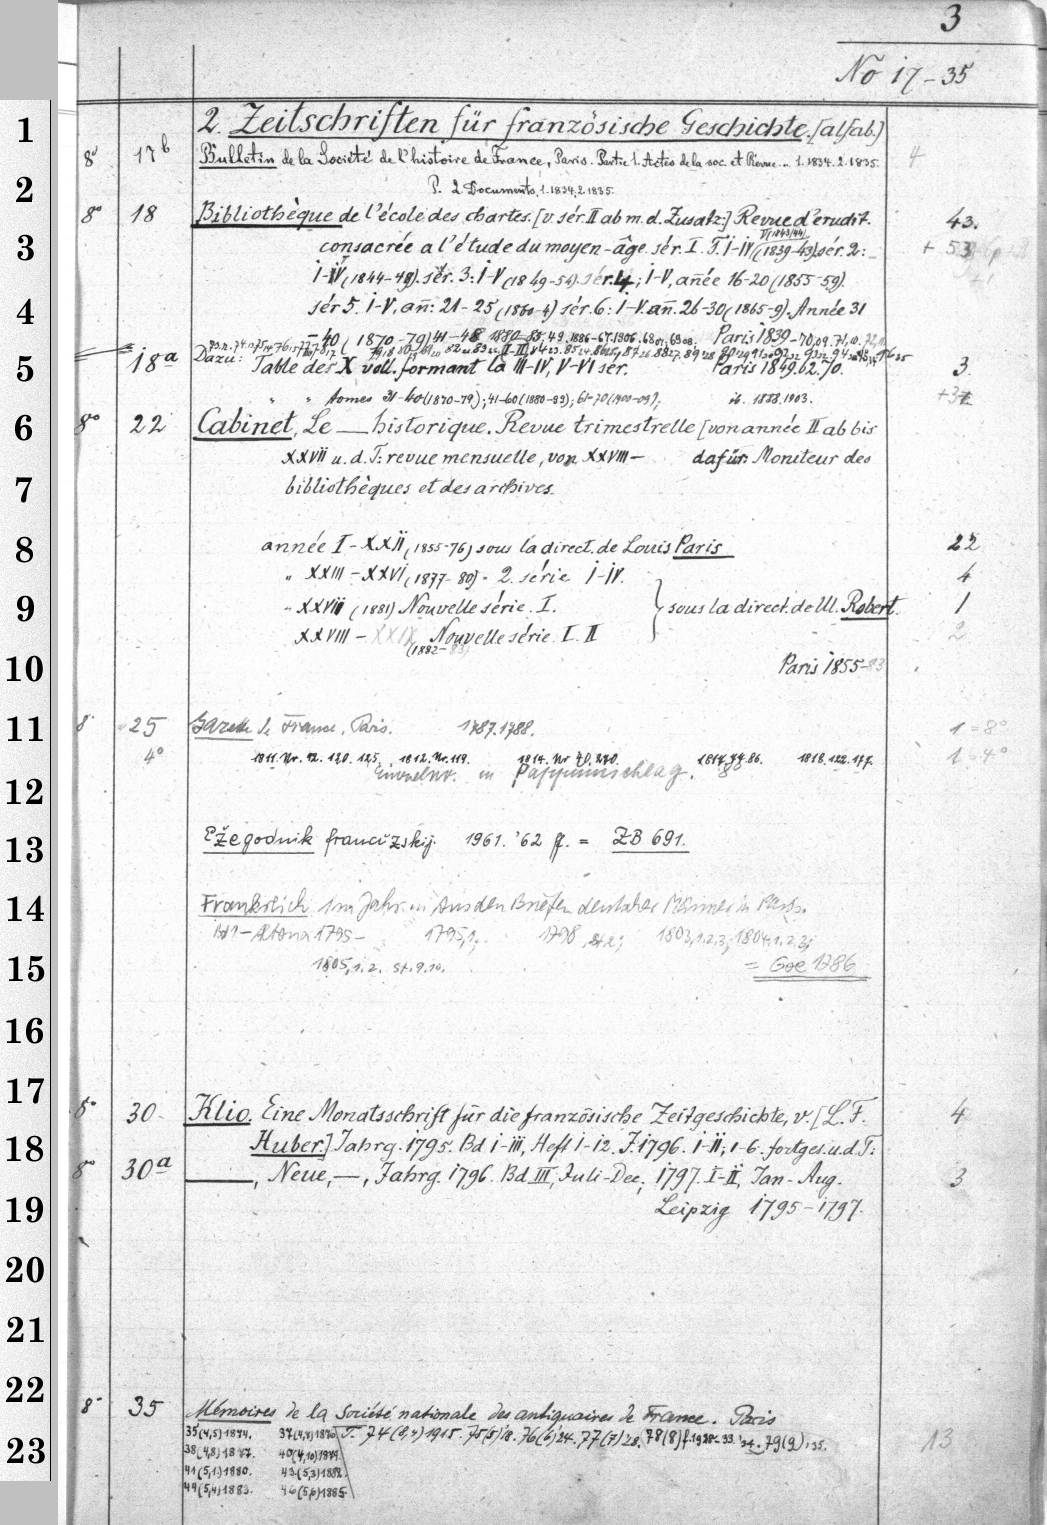 3
No 17-35
2. Zeitschriften für französische Geschichte. [alfab.]
8° 17b Bulletin de la Société de l'histoire de France, Paris. Partie 1. Actes de la soc. et Revue 1.1834. 2.1835. 4
P. 2 Documents, 1.1834, 2.1835.
8° 18 Bibliothèque de l'école des chartes. [v. sér. II ab m. d. Zusatz:] Revue d'érudit. 43.
consacrée a l'étude du moyen-âge. sér. I. T. I-IV (1839-43). sér. 2: + 53
I-IV (1844-48). sér. 3: I-V (1849-54). sér. 4; I-V, année 16-20 (1855-59).
sér 5. I-V. añ: 21-25 (1860-4) sér. 6: I-V. añ. 26-30 (1865-9). Année 31
-40 (1870-79) 41-48 1880 Paris 1839-70,
18a Dazu: Table des X voll. formant la III-IV, V-VI sér. Paris 1849.62.70. 3.
" " tomes 31-40 (1870-79); 41-60 (1880-99); 61-70 (1900-09); ib. 1888.1903. +3
8° 22 Cabinet, Le — historique. Revue trimestrelle [von année II ab bis
XXVII u. d. T: revue mensuelle, von XXVIII — dafür: Moniteur des
bibliothèques et des archives.
année I-XXII (1855-76) sous la direct. de Louis Paris 22
" XXIII-XXVI (1877-80) = 2. série I-IV. 4
" XXVII (1881) Nouvelle série. I. } sous la direct. de M. Robert. 1
XXVIII-XXIX Nouvelle série. I. II 2
(1882-83)
Paris 1855-83
8° 25 Gazette de France, Paris. 1787.1788. 1=8°
4° 1811. Nr. 12. 120. 125. 1812. Nr. 119. 1814. Nr 40. 270. 1817. 86. 1818. 122. 177. 1=4°
Einzelnr. in Pappumschlag.
Ežegodnik francuzskij. 1961. '62 ff. = ZB 691.
Frankreich im Jahr. Aus den Briefen deutscher Männer in Paris.
Altona 1795- 1795,1; 1798, St 2; 1803,1.2.3; 1804,1.2.3;
1805,1.2. St. 9.10. = Goe 1786
8° 30 Klio. Eine Monatsschrift für die französische Zeitgeschichte, v. [L. F. 4
Huber.] Jahrg. 1795. Bd I-III, Heft 1-12. J. 1796. I-II, 1-6. fortges. u. d. T:
8° 30a —, Neue, —, Jahrg. 1796. Bd III, Juli-Dec, 1797. I-II, Jan-Aug. 3
Leipzig 1795-1797.
8° 35 Mémoires de la Société nationale des antiquaires de France. Paris
35 (4,5) 1874. 37 (4,7) 1876 T. 74 (8,4) 1915. 75 (5) '18. 76 (6) '24. 77 (7) '28. 78 (8) f. 1928-33. '34. 79 (9) '35. 13
38 (4,8) 1877. 40 (4,10) 1879.
41 (5,1) 1880. 43 (5,3) 1882.
44 (5,4) 1883. 46 (5,6) 1885.
1
2
3
4
5
6
7
8
9
10
11
12
13
14
15
16
17
18
19
20
21
22
23